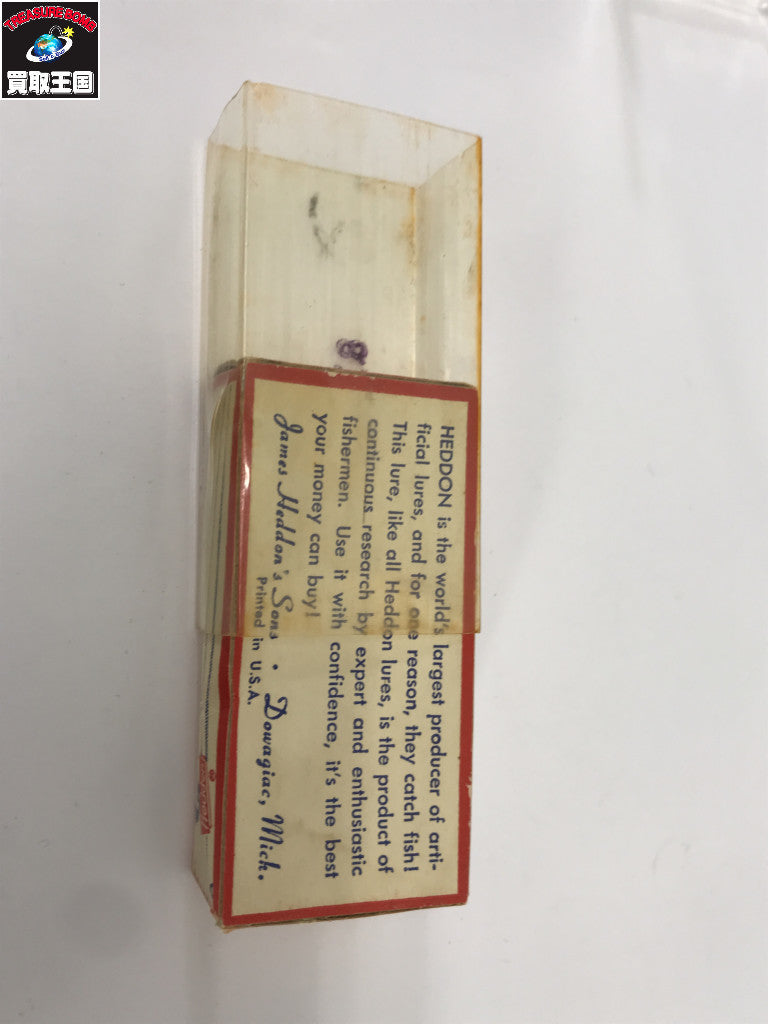 TREASURE ISLAND
買取王国
HEDDON is the world's largest producer of arti-
ficial lures, and for one reason, they catch fish!
This lure, like all Heddon lures, is the product of
continuous research by expert and enthusiastic
fishermen. Use it with confidence, it's the best
your money can buy!
James Heddon's Sons • Dowagiac, Mich.
Printed in U.S.A.